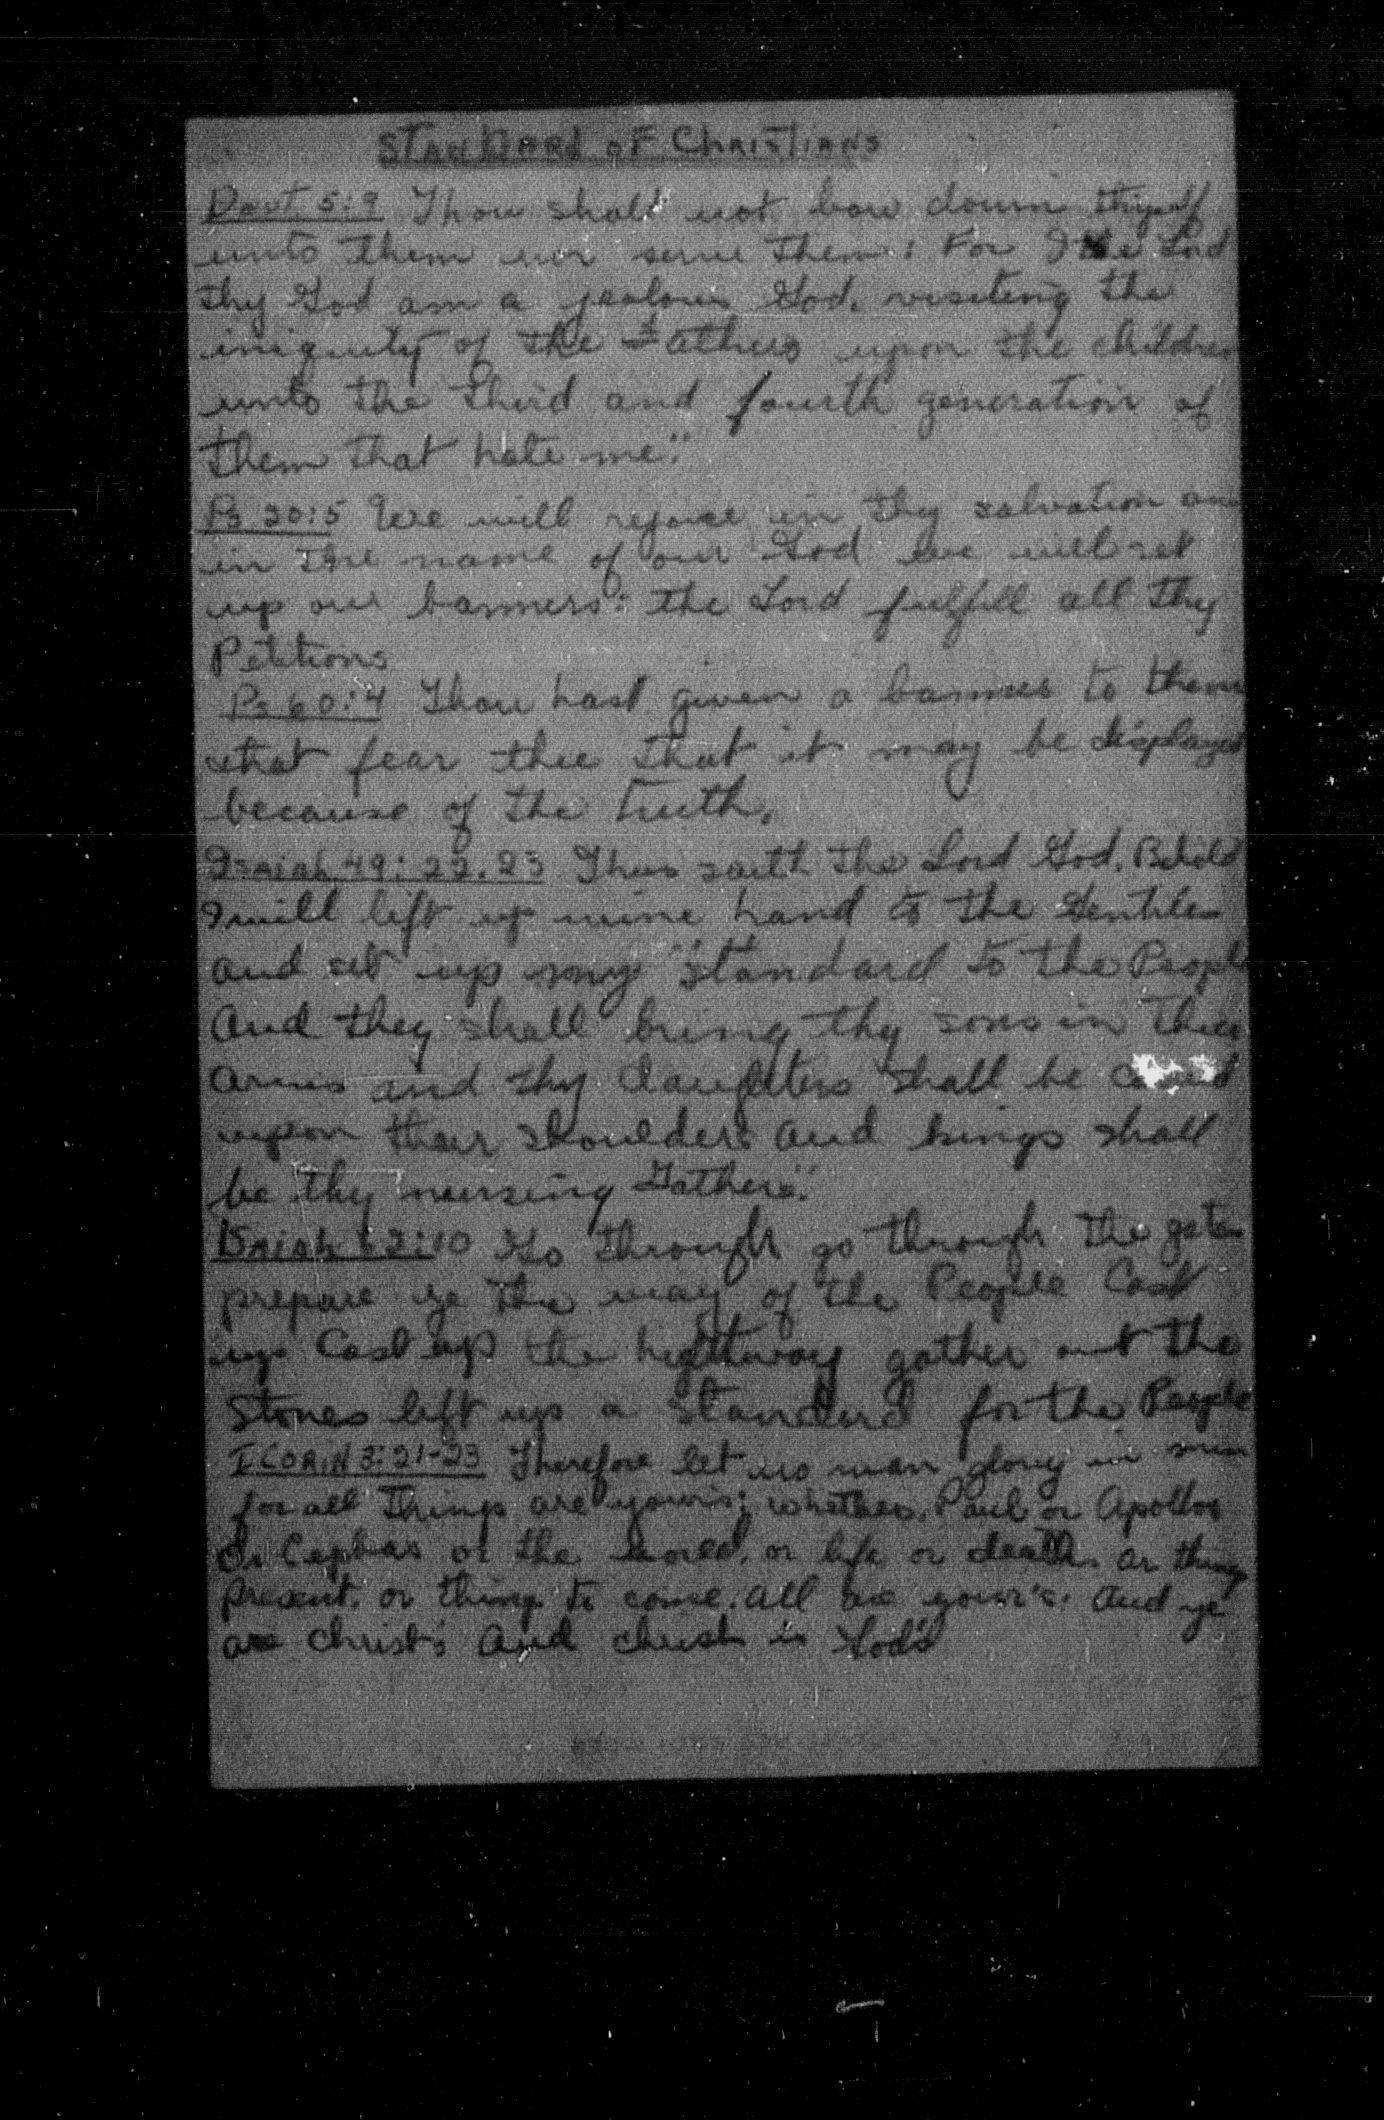 STANDARD OF CHRISTIANS
Deut 5:9 Thou shalt not bow down thyself
unto them nor serve them: For I the Lord
thy God am a jealous God, visiting the
iniquity of the Fathers upon the children
unto the third and fourth generation of
them that hate me."
Ps 20:5 We will rejoice in thy salvation an
in the name of our God we will set
up our banners: the Lord fulfill all thy
Petitions
Ps 60:4 Thou hast given a banner to them
that fear thee that it may be displayed
because of the truth.
Isaiah 49:22.23 Thus saith the Lord God, Behold
I will lift up mine hand to the Gentiles
and set up my "standard to the People
And they shall bring thy sons in their
arms and thy daughters shall be
upon their shoulders and kings shall
be thy nursing Fathers."
Isaiah 62:10 Go through go through the gates
prepare ye the way of the People Cast
up Cast up the hightway gather out the
Stones lift up a standard for the People
I CORIN 3:21-23 Therefore let no man glory in men
for all Things are your's; whether, Paul or Apollos
Or Cephas or the world, or life or death, or things
Present, or things to come. all are your's. And ye
are Christ's And christ is God's